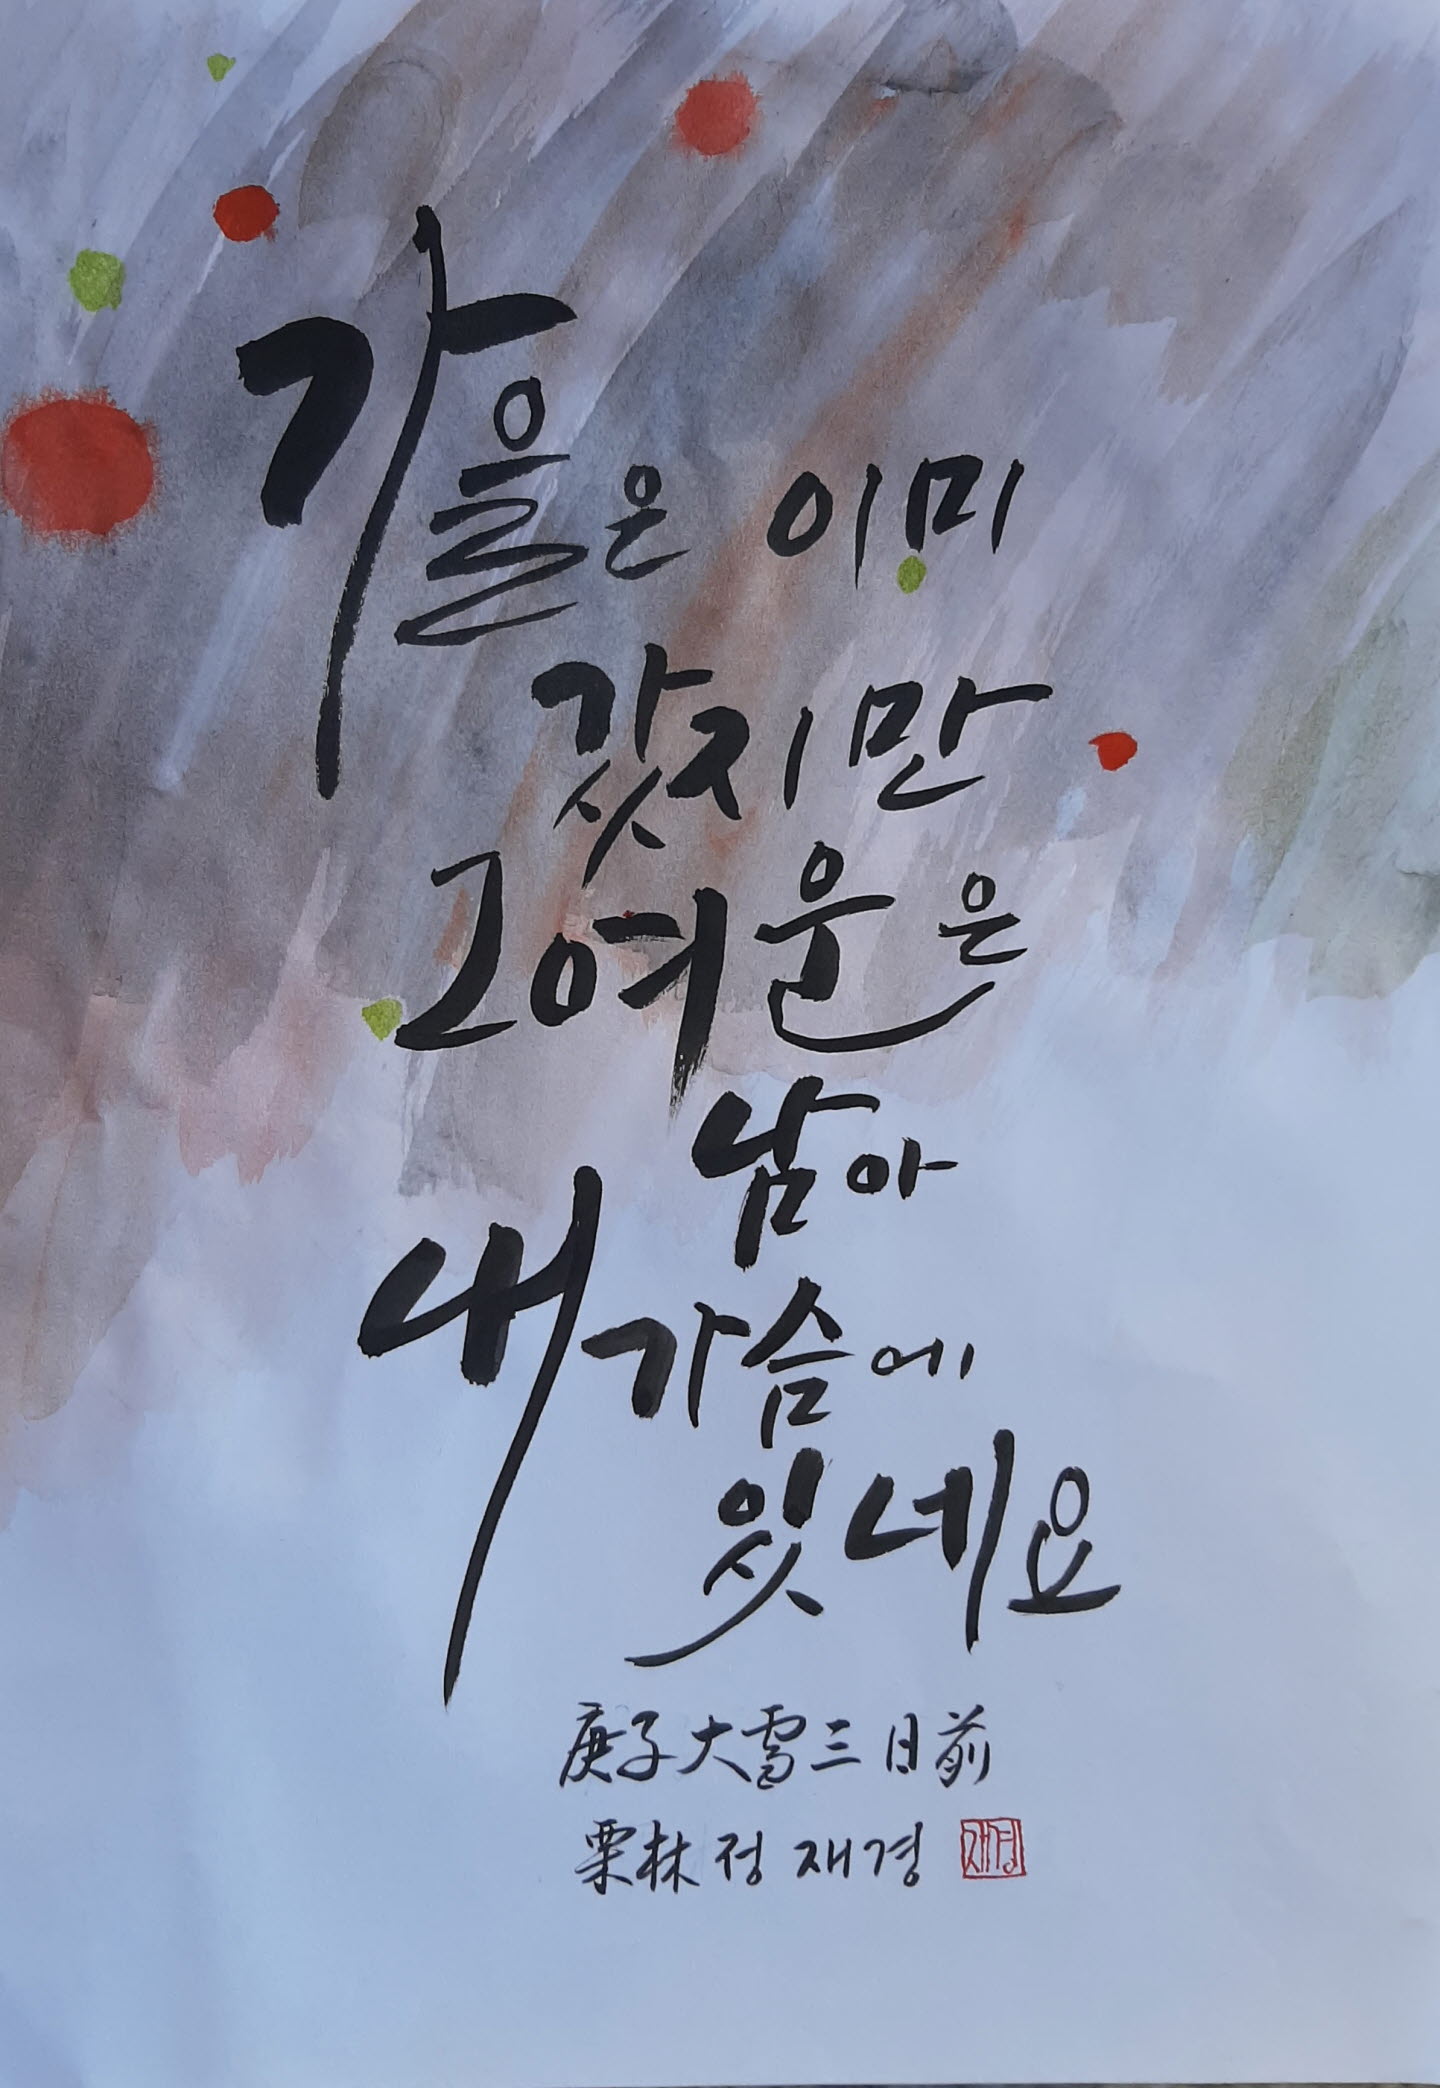 가을은 이미
갔지만
그 여운은
남아
내 가슴에
있네요
庚子大雪三日前
栗林 정재경
재경